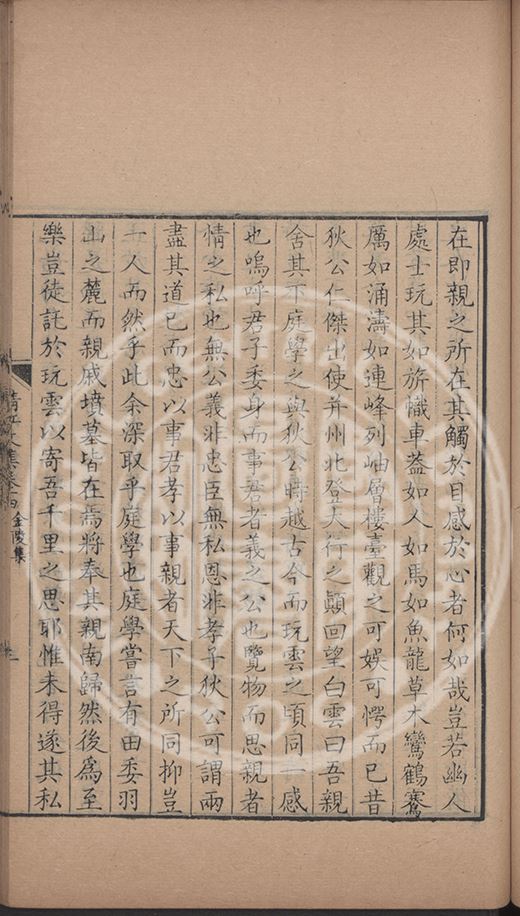 在即親之所在其觸於目感於心者何如哉豈若幽人
處士玩其如旂幟車蓋如人如馬如魚龍草木鸞鶴騫
厲如涌濤如連峰列岫層樓臺觀之可娛可愕而已昔
狄公仁傑出使并州北登太行之顛回望白雲曰吾親
舍其下庭學之與狄公時越古今而玩雲之頃同一感
也嗚呼君子委身而事君者義之公也覽物而思親者
情之私也無公義非忠臣無私恩非孝子狄公可謂兩
盡其道已而忠以事君孝以事親者天下之所同抑豈
一人而然乎此余深取乎庭學也庭學嘗言有田委羽
山之麓而親戚墳墓皆在焉將奉其親南歸然後為至
樂豈徒託於玩雲以寄吾千里之思耶惟未得遂其私
集卷四 金陵集